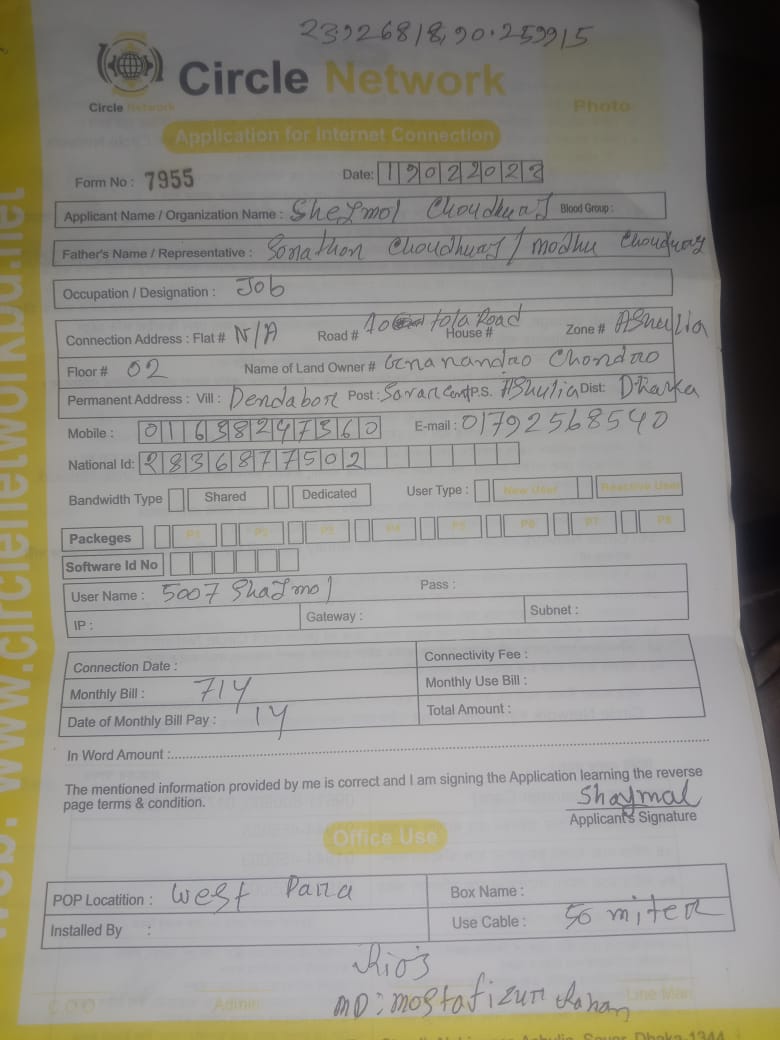 23.926818,90.259915
Circle Network
Circle Network
Photo
Application for Internet Connection
Form No : 7955
Date: 19022023
Applicant Name / Organization Name : Shaymol Choudhury Blood Group :
Father's Name / Representative : Sonathon Choudhury / Modhu Choudhury
Occupation / Designation : Job
Connection Address : Flat # N/A Road # 10 tola Road House # Zone # AShulia
Floor # 02 Name of Land Owner # Chondro
Permanent Address : Vill : Dendabor Post : Savar Cent P.S. AShulia Dist: Dhaka
Mobile : 01638247360 E-mail : 01792568540
National Id: 2836877502
Bandwidth Type Shared Dedicated User Type : New User Reactive User
Packeges P1 P2 P3 P4 P5 P6 P7 P8
Software Id No
User Name : 5007 Shaymol Pass :
IP : Gateway : Subnet :
Connection Date : Connectivity Fee :
Monthly Bill : 714 Monthly Use Bill :
Date of Monthly Bill Pay : 14 Total Amount :
In Word Amount :
The mentioned information provided by me is correct and I am signing the Application learning the reverse
page terms & condition.
Shaymal
Applicant's Signature
Office Use
POP Locatition : West Para Box Name :
Installed By : Use Cable : 50 miter
MD: Mostafizur Rahan
C.O.O Admin Line Man
Ashulia, Savar, Dhaka-1344
web: www.circlenetworkbd.net